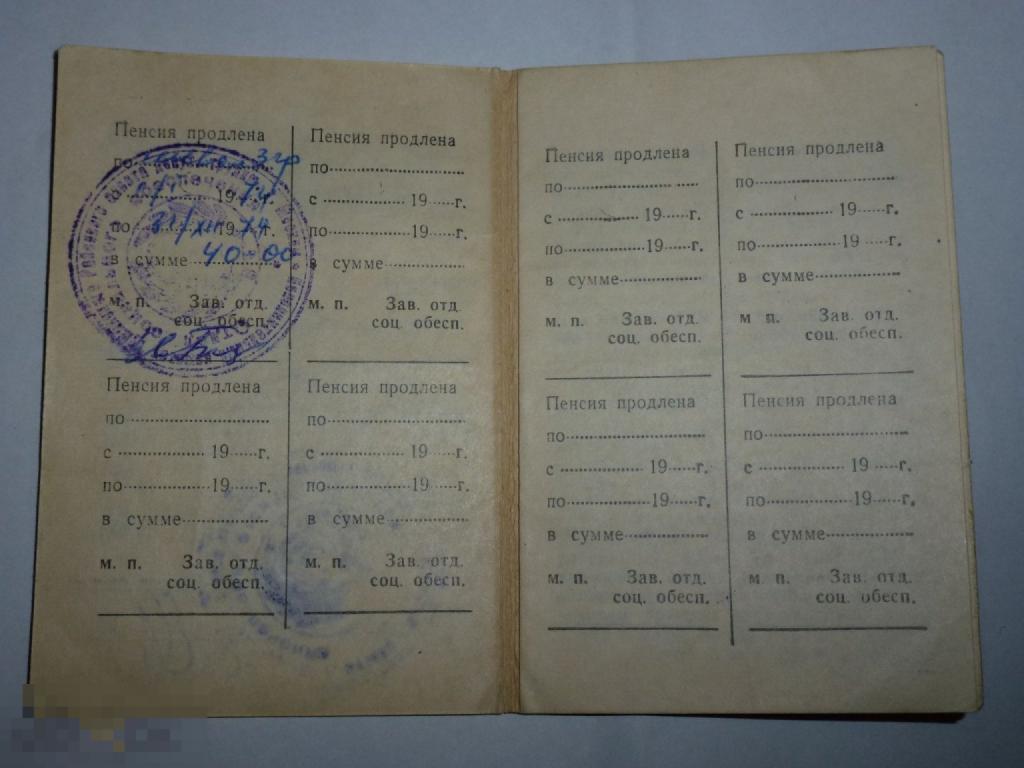 Пенсия продлена
по 3 гр
с 19 74
по 31/XII 1974 г.
в сумме 40-00
м. п. Зав. отд.
соц. обесп.
Пенсия продлена
по
с 19 г.
по 19 г.
в сумме
м. п. Зав. отд
соц. обесп.
Пенсия продлена
по
с 19 г.
по 19 г.
в сумме
м. п. Зав. отд.
соц. обесп.
Пенсия продлена
по
с 19 г.
по 19 г.
в сумме
м. п. Зав. отд.
соц. обесп.
Пенсия продлена
по
с 19 г.
по 19 г.
в сумме
м. п. Зав. отд.
соц. обесп.
Пенсия продлена
по
с 19 г.
по 19 г.
в сумме
м. п. Зав. отд.
соц. обесп.
Пенсия продлена
по
с 19 г.
по 19 г.
в сумме
м. п. Зав. отд.
соц. обесп.
Пенсия продлена
по
с 19 г.
по 19 г.
в сумме
м. п. Зав. отд.
соц. обесп.